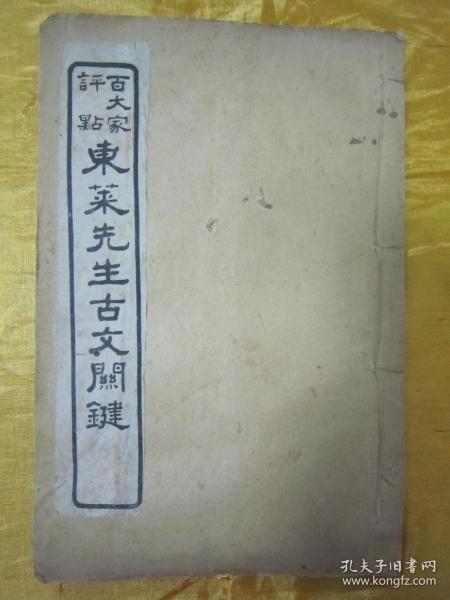 百大家
評點
東萊先生古文關鍵
孔夫子旧书网
www.kongfz.com